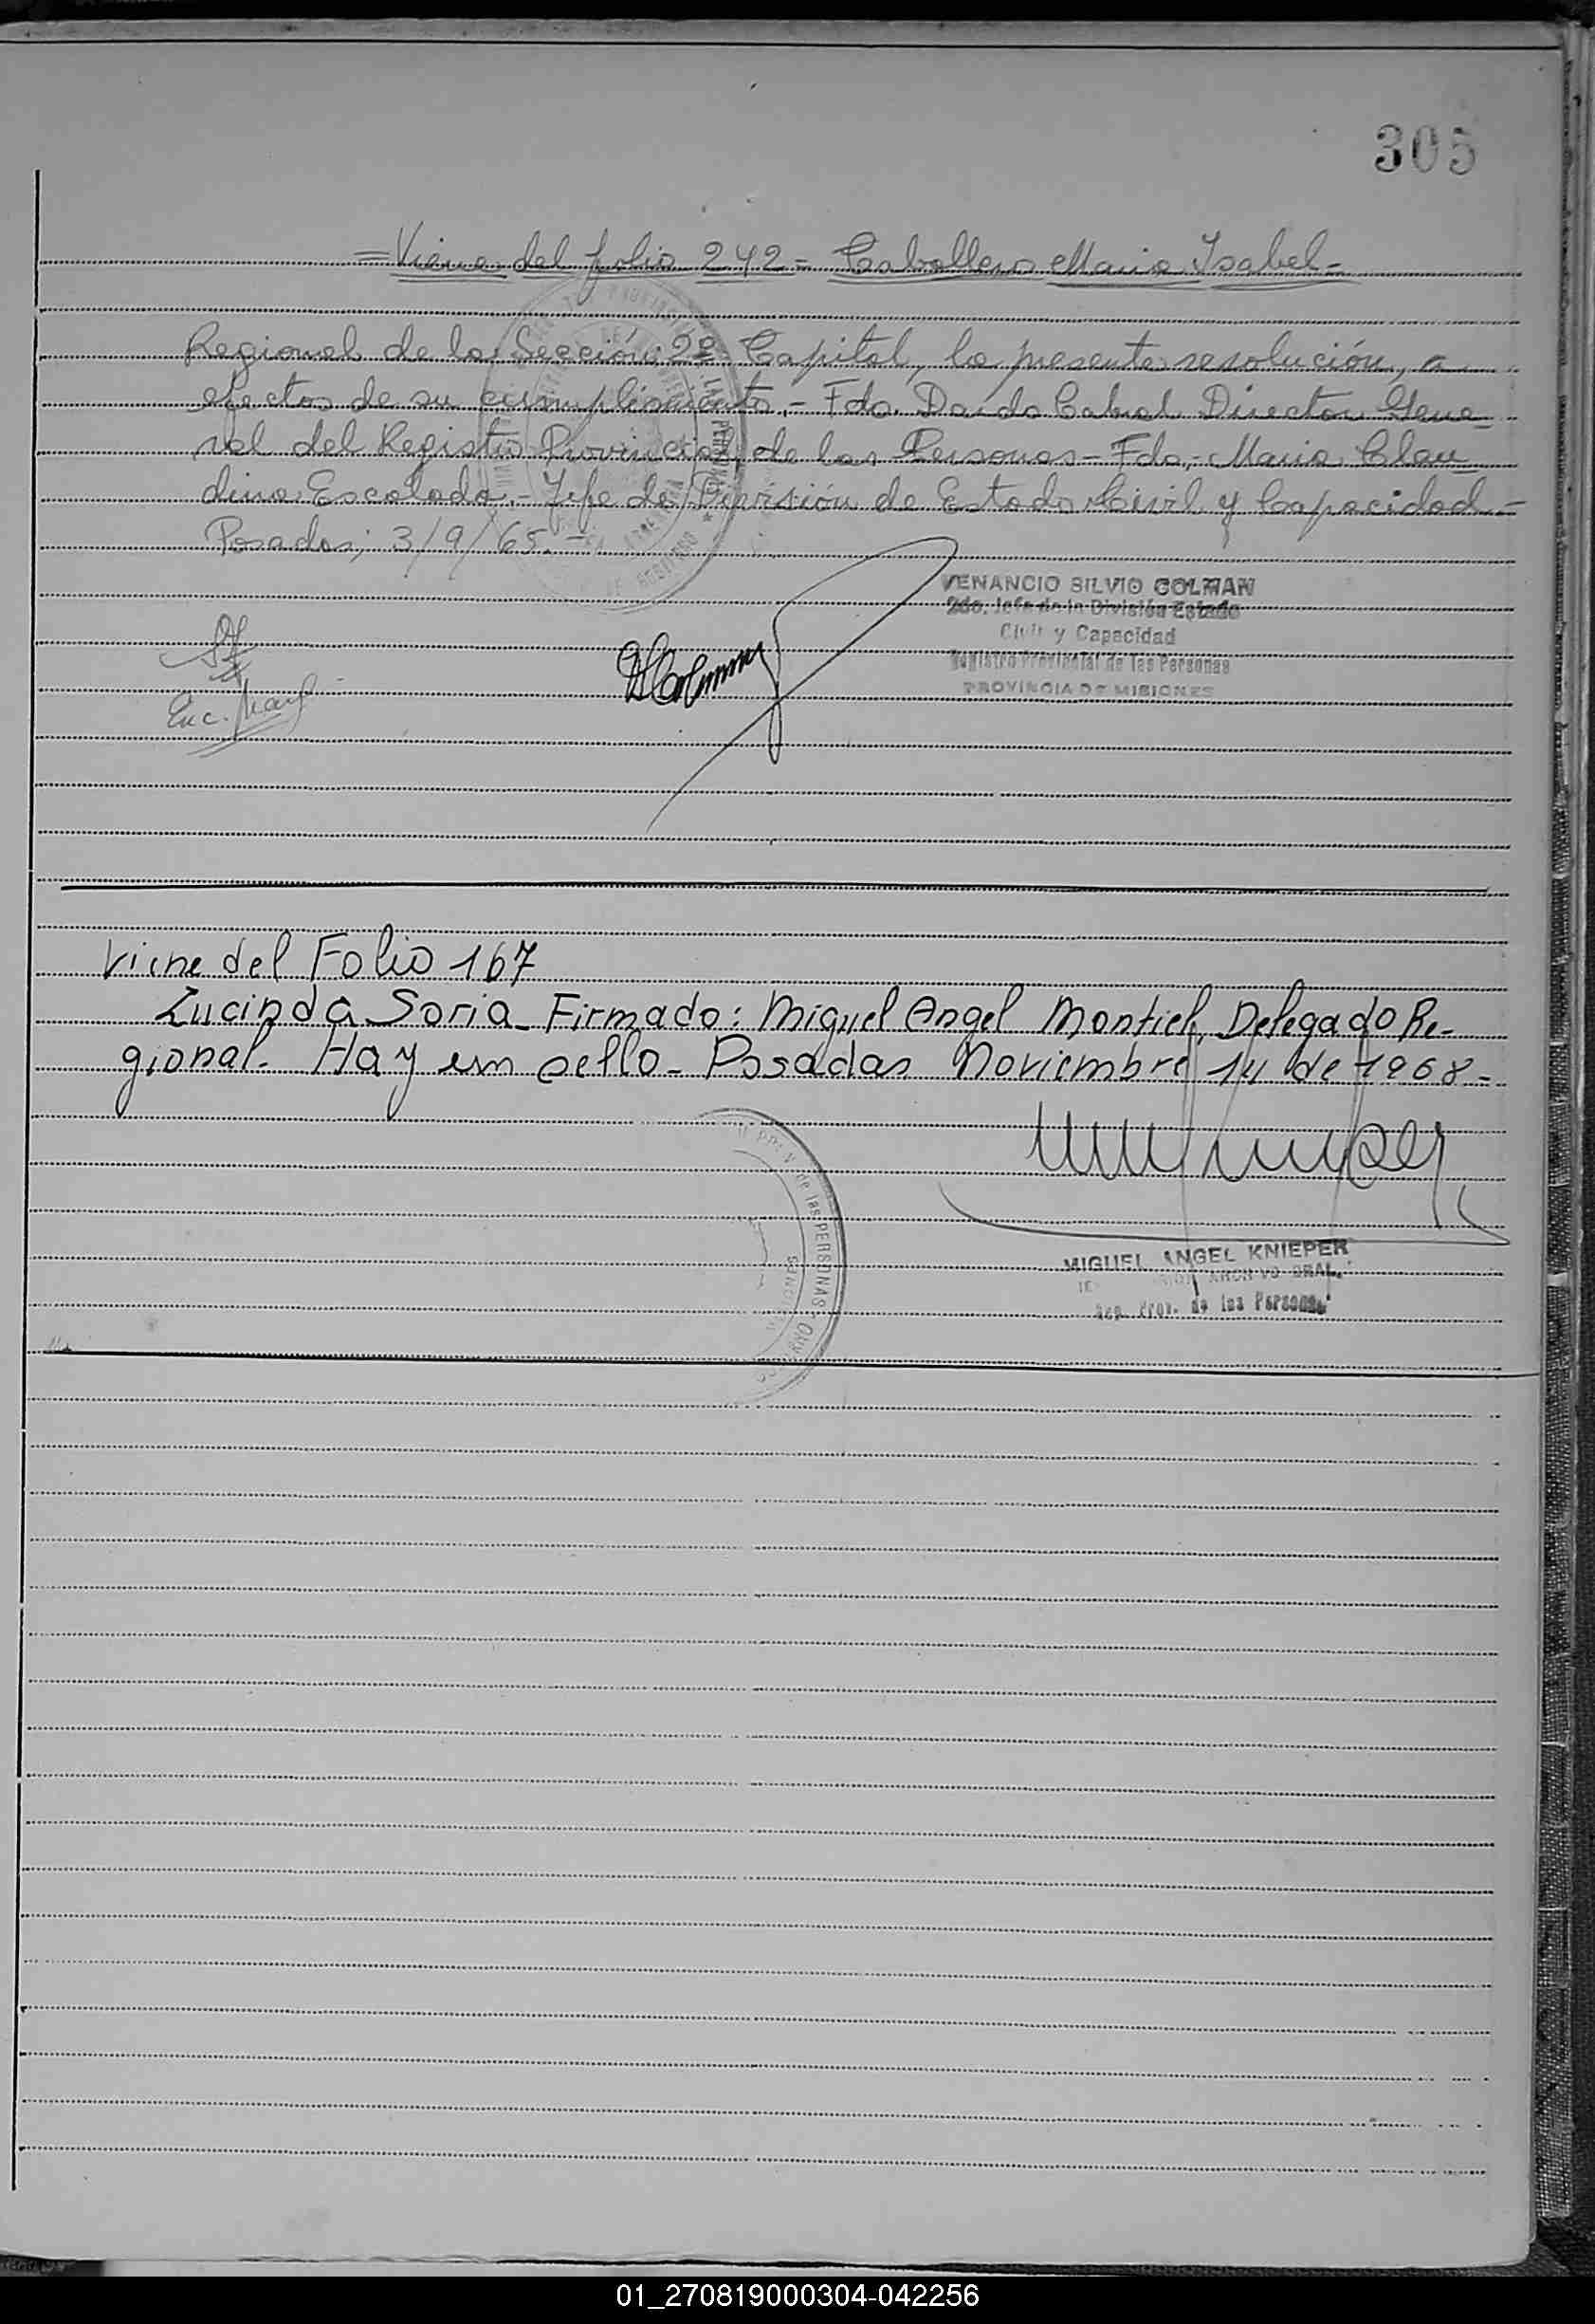 305
= Viene del folio 242 = Caballero Maria Isabel -
Regional de la Sección 2ª Capital, la presente resolución, a
efectos de su cumplimiento.- Fdo. Dardo Cabral Director Gene
ral del Registro Provincial de las Personas - Fdo.- Maria Clau
dina Escalada.- Jefe de División de Estado Civil y Capacidad.-
Posadas, 3/9/65.-
VENANCIO SILVIO COLMAN
2do. Jefe de la División Estado
Civil y Capacidad
Registro Provincial de las Personas
PROVINCIA DE MISIONES
Enc.
Viene del Folio 167
Lucinda Soria - Firmado: Miguel Angel Montiel, Delegado Re-
gional - Hay un sello - Posadas Noviembre 14 de 1968 -
de las PERSONAS
MIGUEL ANGEL KNIEPER
ARCHIVO GRAL.
Reg. Prov. de las Personas
01_270819000304-042256